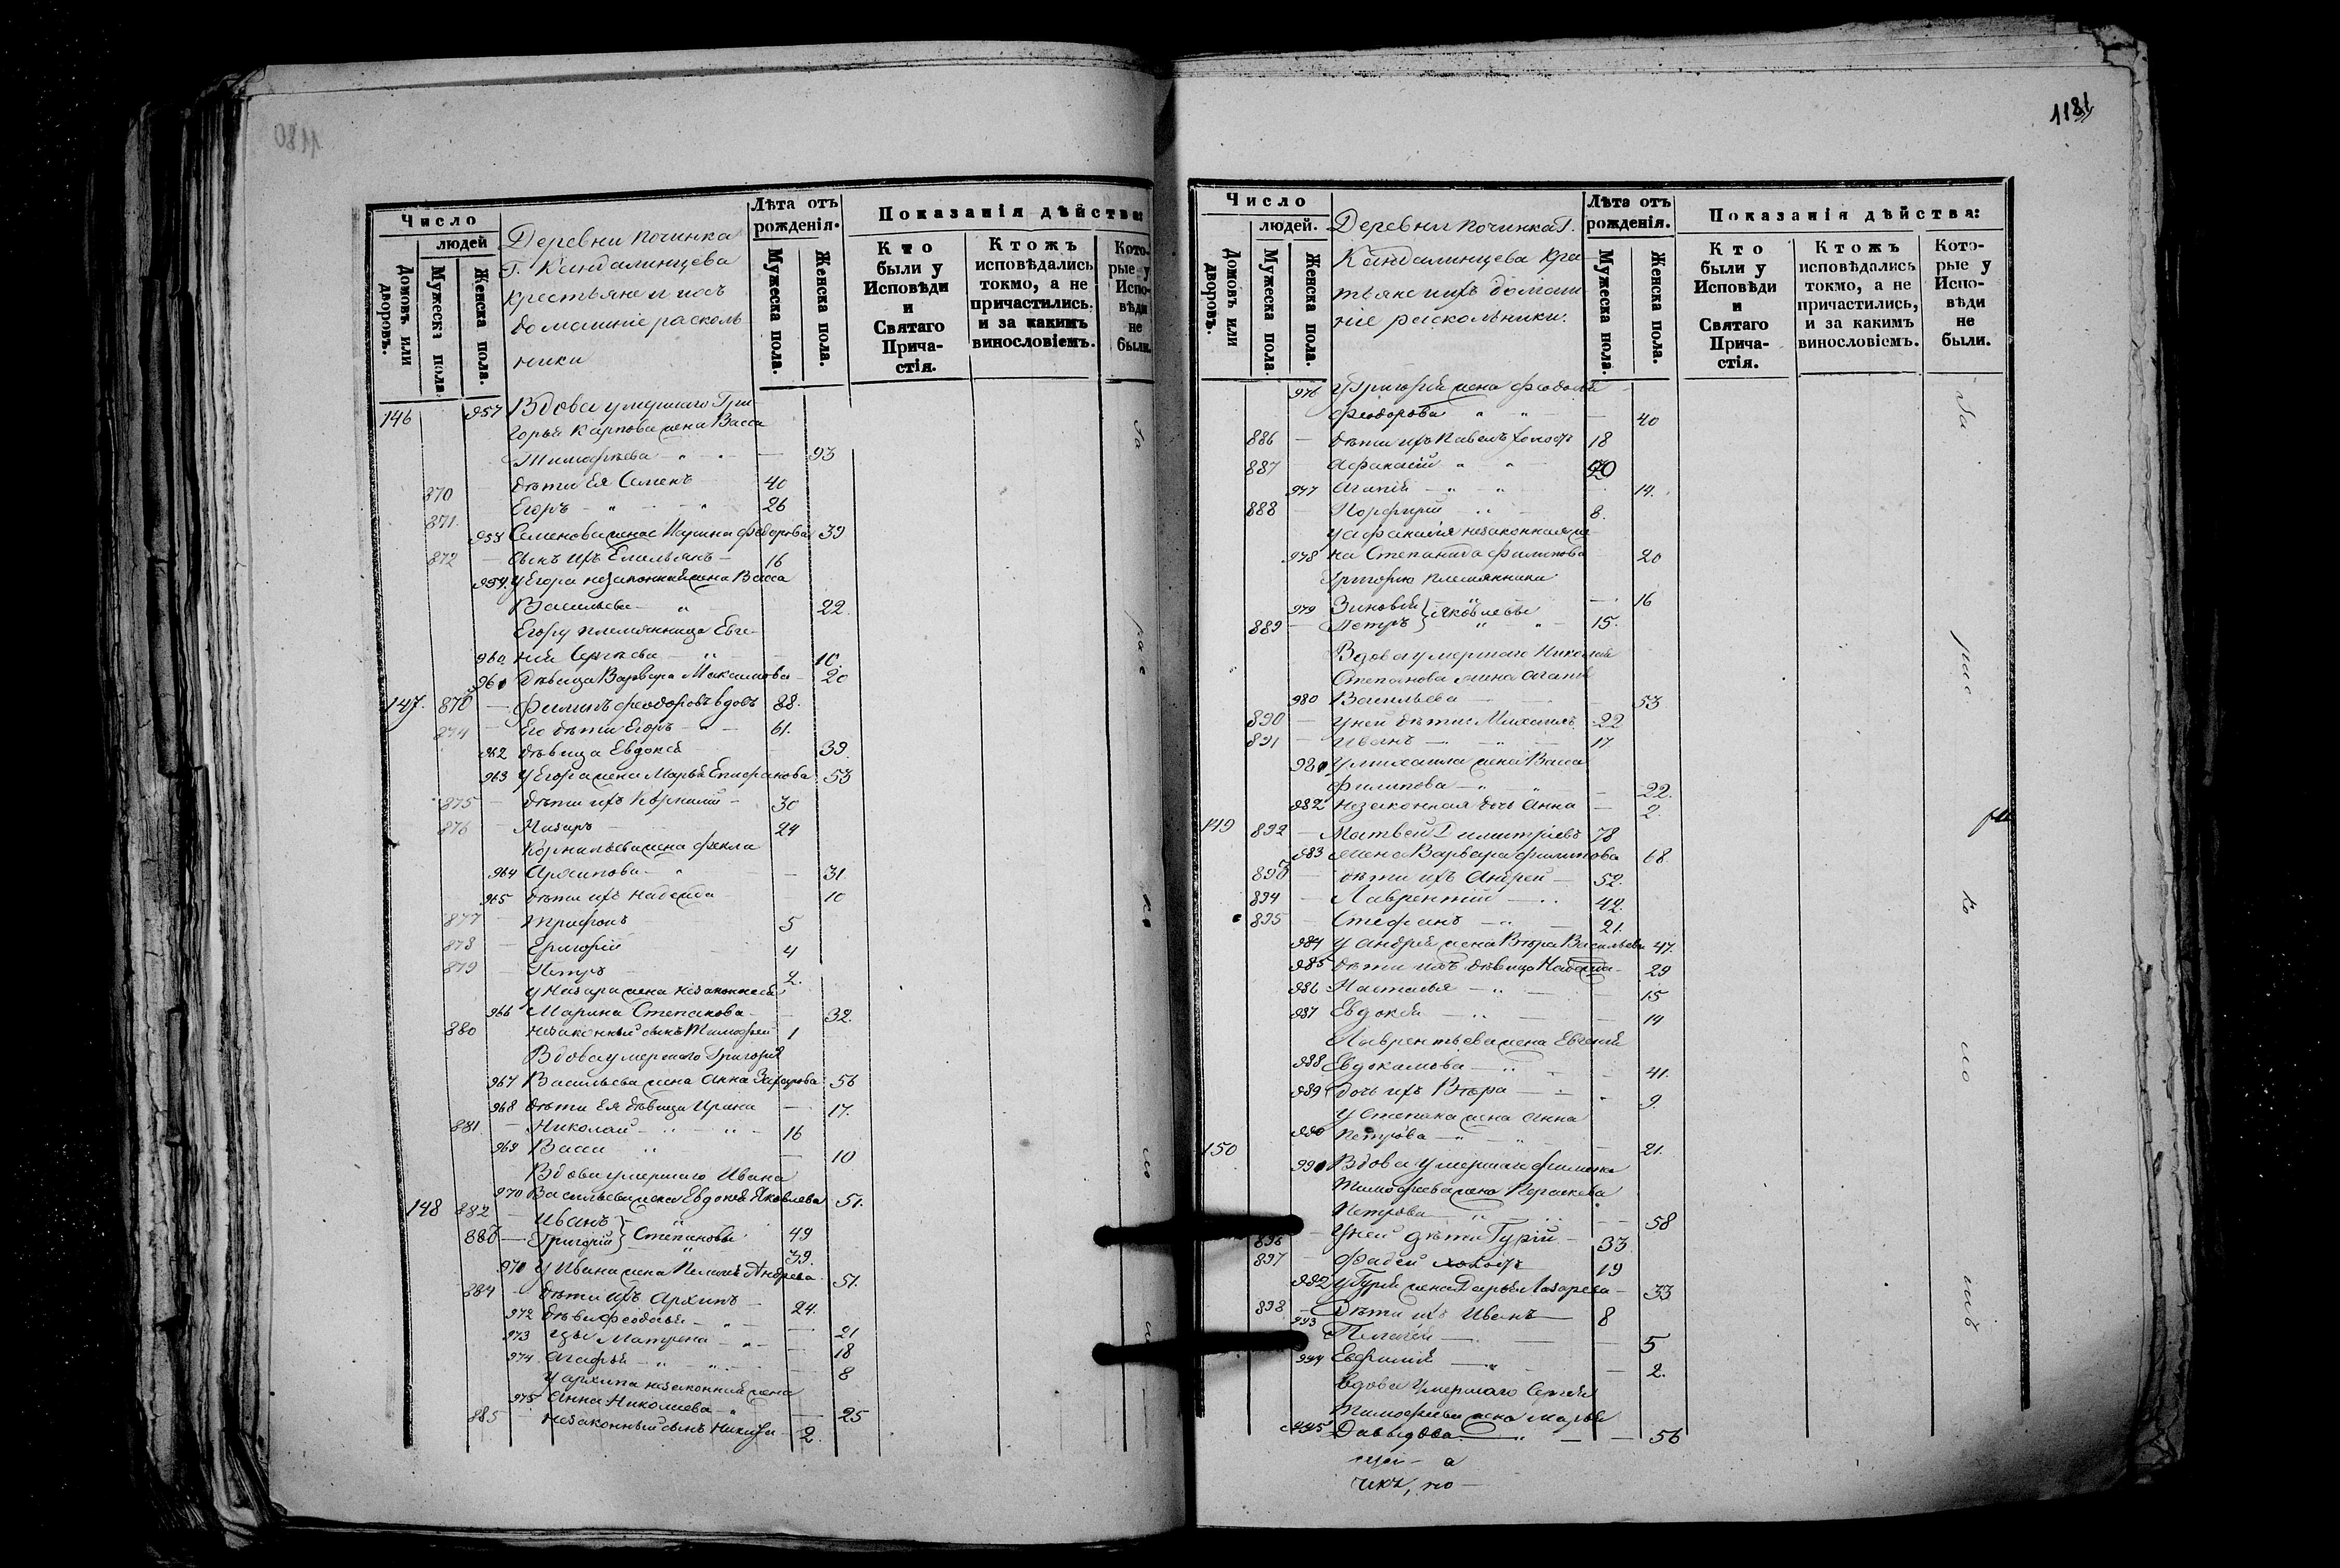 1180
Число
людей
Домовъ или дворовъ.
Мужеска пола
Женска пола.
Деревни Починка
Г. Кандалинцева
крестьяне и ихъ
домашніе расколь
ники
Лѣта отъ рожденія.
Мужеска пола.
Женска пола.
Показанія дѣйства:
Кто были у Исповѣди и Святаго Прича-стія.
Ктожъ исповѣдались токмо, а не причастились. и за какимъ винословіемъ.
Кото-рые у Испо-вѣди не были.
146 957 Вдова умершаго Гри
горья Карпова жена Васса
Тимофеева 93
870 дѣти Ея Семенъ 40
871. Егоръ 26
958 Семенова жена Ирина Федорова 39
872 сынъ ихъ Емельянъ 16
959. у Егора незаконная жена Васса
Васильева 22
Егору племянница Евге-
960 нія Сергѣева 10.
961 Дѣвица Варвара Максимова 20
147. 873 Филипъ Феодоровъ вдовъ 88.
874 Его дѣти Егоръ 61.
962 дѣвица Евдокія 39.
963 у Егора жена Марья Епифанова 53
875 дѣти ихъ Корнилій 30
876 Назаръ 24
Корнильева жена Фекла
964 Архипова 31
965 дѣти ихъ Надежда 10
877 Трифонъ 5
878 Григорій 4
879 Петръ 2.
у Назара жена незаконная
966 Марина Степанова 32.
880 незаконный сынъ Тимофей 1
Вдова умершаго Григорья
967 Васильева жена Анна Захарова 56
968 дѣти Ея дѣвица Ирина 17.
881 Николай 16
969 Васса 10
Вдова умершаго Ивана
970 Васильева жена Евдокія Яковлева 51.
148 882 Иванъ } Степановы 49
883 Григорій } 39.
971 у Ивана жена Пелагея Андреева 51.
884 дѣти ихъ Архипъ 24.
972 дѣви Феодосья 21
973 цы Матрена 18
974 Агафья 8
у Архипа незаконная жена
975 Анна Николаева 25
885 незаконный сынъ Никифоръ 2.
За рас ко ло
1181
Число
людей.
Домовъ или дворовъ.
Мужеска пола.
Женска пола.
Деревни Починка Г.
Кандалинцева кре
тьяне ихъ домаш
ніе раскольники.
Лѣта отъ рожденія.
Мужеска пола.
Женска пола.
Показанія дѣйства:
Кто были у Исповѣди и Святаго Прича-стія.
Ктожъ исповѣдались токмо, а не причастились, и за какимъ винословіемъ.
Кото-рые у Испо-вѣди не были.
976 у Григорья жена Феодосья
Феодорова 40
886 дѣти ихъ Павелъ холостъ 18
887 Афанасій 20
977 Агапія 14.
888 Порфирій 8.
у Афанасія незаконная же
978 на Степанида Филипова 20
Григорью племянники
979 Зиновья } Яковлевы 16
889 Петръ } 15.
Вдова умершаго Николая
Степанова жена Агапія
980 Васильева 53
890 У ней дѣти Михаилъ 22
891 Иванъ 17
981 у Михаила жена Васса
Филипова 22.
982 незаконная дочь Анна 2.
149 892 Матвей Димитріевъ 78
983 жена Варвара Филипова 68.
893 дѣти ихъ Андрей 52.
894 Лаврентій 42.
895 Стефанъ 21.
984 у Андрея жена Вѣра Васильева 47.
985 дѣти ихъ дѣвица Надежда 29
986 Наталья 15
987 Евдокія 14
Лаврентьева жена Евгенія
988 Евдокимова 41.
989 дочь ихъ Вѣра 9.
у Степана жена Анна
990 Петрова 21.
150 991 Вдова умершаго Филипа
Тимофеева жена Параскева
Петрова 58
896 У ней дѣти Гурій 33
897 Фадей холостъ 19
992 у Гурья жена Дарья Лазарева 33
898 Дѣти ихъ Иванъ 8
993 Пелагея 5
994 Евфимія 2.
Вдова умершаго Сергѣя
Тимофеева жена Марья
995 Давыдова 56
чикъ, по
За рас ко ло